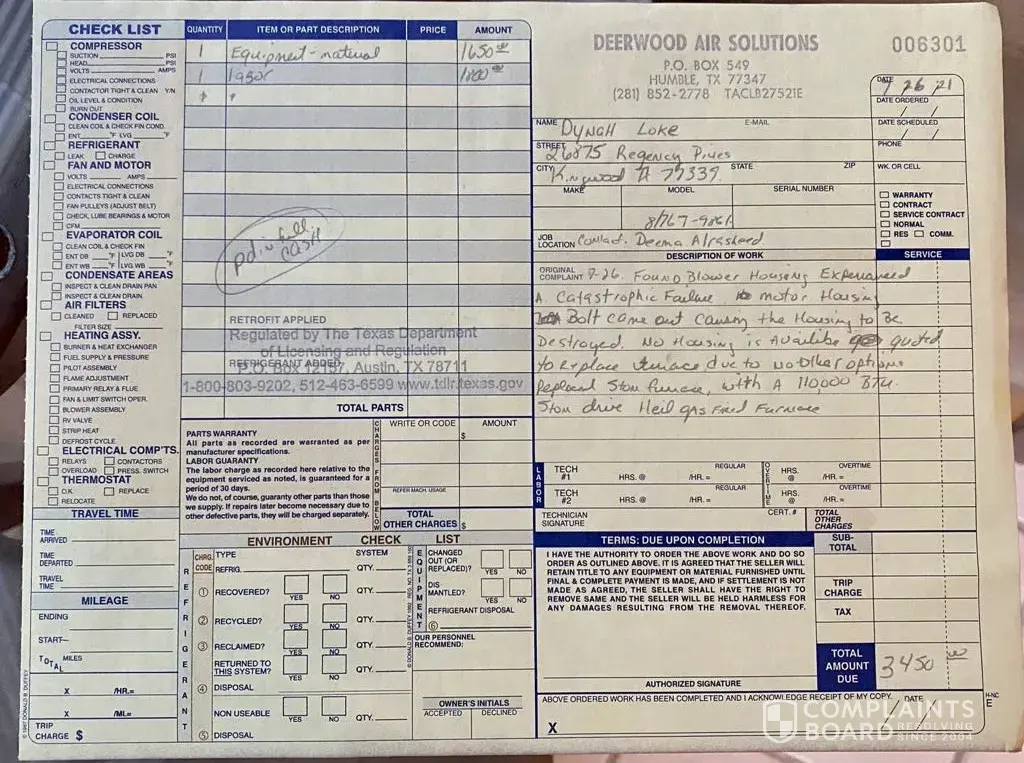 CHECK LIST
COMPRESSOR
SUCTION PSI
HEAD PSI
VOLTS AMPS
ELECTRICAL CONNECTIONS
CONTACTOR TIGHT & CLEAN Y/N
OIL LEVEL & CONDITION
BURN OUT
CONDENSER COIL
CLEAN COIL & CHECK FIN COND.
ENT °F LVG °F
REFRIGERANT
LEAK CHARGE
FAN AND MOTOR
VOLTS AMPS
ELECTRICAL CONNECTIONS
CONTACTS TIGHT & CLEAN
FAN PULLEYS (ADJUST BELT)
CHECK, LUBE BEARINGS & MOTOR
CFM
EVAPORATOR COIL
CLEAN COIL & CHECK FIN
ENT DB °F LVG DB °F
ENT WB °F LVG WB °F
CONDENSATE AREAS
INSPECT & CLEAN DRAIN PAN
INSPECT & CLEAN DRAIN
AIR FILTERS
CLEANED REPLACED
FILTER SIZE
HEATING ASSY.
BURNER & HEAT EXCHANGER
FUEL SUPPLY & PRESSURE
PILOT ASSEMBLY
FLAME ADJUSTMENT
PRIMARY RELAY & FLUE
FAN & LIMIT SWITCH OPER.
BLOWER ASSEMBLY
RV VALVE
STRIP HEAT
DEFROST CYCLE
ELECTRICAL COMP'TS.
RELAYS CONTACTORS
OVERLOAD PRESS. SWITCH
THERMOSTAT
O.K. REPLACE
RELOCATE
TRAVEL TIME
TIME ARRIVED
TIME DEPARTED
TRAVEL TIME
MILEAGE
ENDING
START—
TOTAL MILES
X /HR.=
X /MI.=
TRIP CHARGE $
© 1987 DONALD R. DUFFEY
QUANTITY ITEM OR PART DESCRIPTION PRICE AMOUNT
1 Equipment-material 1650 00
1 labor
pd in full
cash
RETROFIT APPLIED
Regulated by The Texas Department
of Licensing and Regulation
REFRIGERANT ADDED
P.O. Box 12157, Austin, TX 78711
1-800-803-9202, 512-463-6599 www.tdlr.texas.gov
TOTAL PARTS
PARTS WARRANTY
All parts as recorded are warranted as per
manufacturer specifications.
LABOR GUARANTY
The labor charge as recorded here relative to the
equipment serviced as noted, is guaranteed for a
period of 30 days.
We do not, of course, guaranty other parts than those
we supply. If repairs later become necessary due to
other defective parts, they will be charged separately.
CHARGES FROM BELOW
WRITE OR CODE AMOUNT
$
REFER MACH. USAGE
TOTAL OTHER CHARGES $
ENVIRONMENT CHECK LIST
REFRIGERANT
CHRG. CODE TYPE SYSTEM
REFRIG. QTY.
① RECOVERED? YES NO QTY.
② RECYCLED? YES NO QTY.
③ RECLAIMED? YES NO QTY.
RETURNED TO THIS SYSTEM? YES NO QTY.
④ DISPOSAL
NON USEABLE YES NO QTY.
⑤ DISPOSAL
EQUIPMENT
CHANGED OUT (OR REPLACED?) YES NO
DIS MANTLED? YES NO
REFRIGERANT DISPOSAL
⑥
OUR PERSONNEL RECOMMEND:
OWNER'S INITIALS
ACCEPTED DECLINED
DEERWOOD AIR SOLUTIONS
P.O. BOX 549
HUMBLE, TX 77347
(281) 852-2778 TACLB27521E
006301
DATE 7 26 21
DATE ORDERED
DATE SCHEDULED
PHONE
WK. OR CELL
NAME Dynah Loke E-MAIL
STREET 26875 Regency Pines
CITY Kingwood 77339 STATE ZIP
MAKE MODEL SERIAL NUMBER
JOB LOCATION Contact. Deema Alrasheed
WARRANTY
CONTRACT
SERVICE CONTRACT
NORMAL
RES COMM.
DESCRIPTION OF WORK SERVICE
ORIGINAL COMPLAINT 7-26. Found Blower Housing Experienced
A Catastrophic Failure. motor Housing
Bolt came out Causing the Housing to Be
Destroyed. No Housing is Available quoted
to Replace furnace due to No Other options
Replaced 5ton furnace, with A 110,000 BTU.
5ton drive Heil gas Fired Furnace
LABOR
TECH #1 HRS. @ /HR. = REGULAR
TECH #2 HRS. @ /HR. = REGULAR
OVERTIME
HRS. @ /HR. = OVERTIME
HRS. @ /HR. = OVERTIME
TECHNICIAN SIGNATURE CERT. #
TOTAL OTHER CHARGES
TERMS: DUE UPON COMPLETION
I HAVE THE AUTHORITY TO ORDER THE ABOVE WORK AND DO SO
ORDER AS OUTLINED ABOVE. IT IS AGREED THAT THE SELLER WILL
RETAIN TITLE TO ANY EQUIPMENT OR MATERIAL FURNISHED UNTIL
FINAL & COMPLETE PAYMENT IS MADE, AND IF SETTLEMENT IS NOT
MADE AS AGREED, THE SELLER SHALL HAVE THE RIGHT TO
REMOVE SAME AND THE SELLER WILL BE HELD HARMLESS FOR
ANY DAMAGES RESULTING FROM THE REMOVAL THEREOF.
AUTHORIZED SIGNATURE
SUB-TOTAL
TRIP CHARGE
TAX
TOTAL AMOUNT DUE 3450 00
ABOVE ORDERED WORK HAS BEEN COMPLETED AND I ACKNOWLEDGE RECEIPT OF MY COPY. DATE
X
COMPLAINTS BOARD RESOLVING SINCE 2004